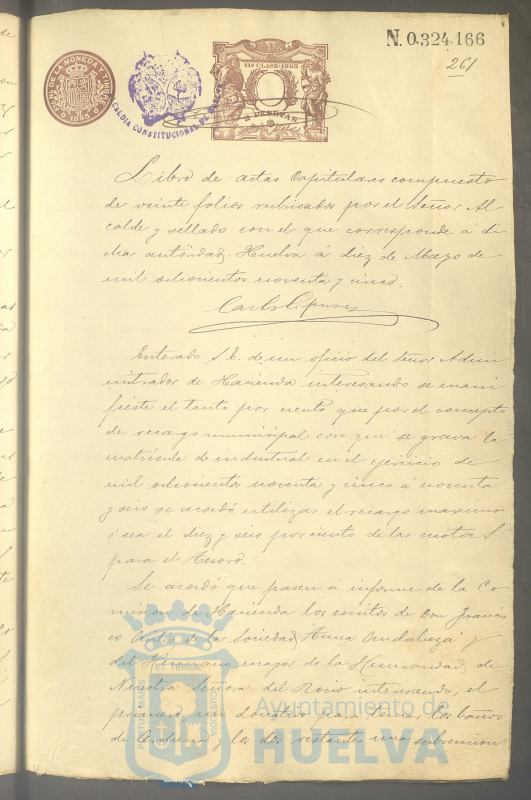 N. 0.324.166
261
11ª CLASE-1895
2 PESETAS
1895
ALCALDIA CONSTITUCIONAL DE
Libro de actas Capitulares compuesto
de veinte folios rubricados por el Señor Al
calde y sellado con el que corresponde á di
cha autoridad. Huelva á diez de Mayo de
mil ochocientos noventa y cinco.
Enterado S. E. de un oficio del Señor Admi
nistrador de Hacienda interesando se mani
fieste el tanto por ciento que por el concepto
de recargo municipal con que se grava la
matrícula de industrial en el ejercicio de
mil ochocientos noventa y cinco á noventa
y seis se acordó utilizar el recargo maximo
ó sea el diez y seis por ciento de las cuotas
para el Tesoro.
Se acordó que pasen á informe de la Co
mision de Hacienda los escritos de Don Francis
co de la Sociedad y
del Hermano mayor de la Hermandad de
Nuestra Señora del Rocio interesando, el
primero un donativo para tomar los baños
de y los dos restantes una subvencion
Ayuntamiento de
HUELVA